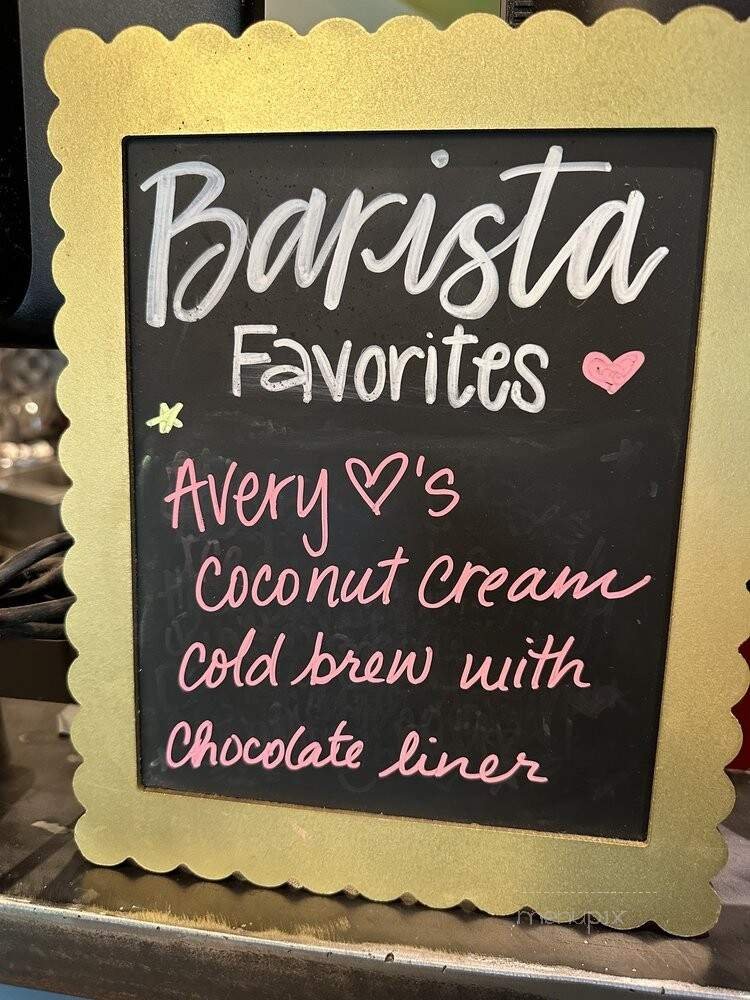 Barista
Favorites
Avery ♡'s
coconut cream
cold brew with
chocolate liner
menupix